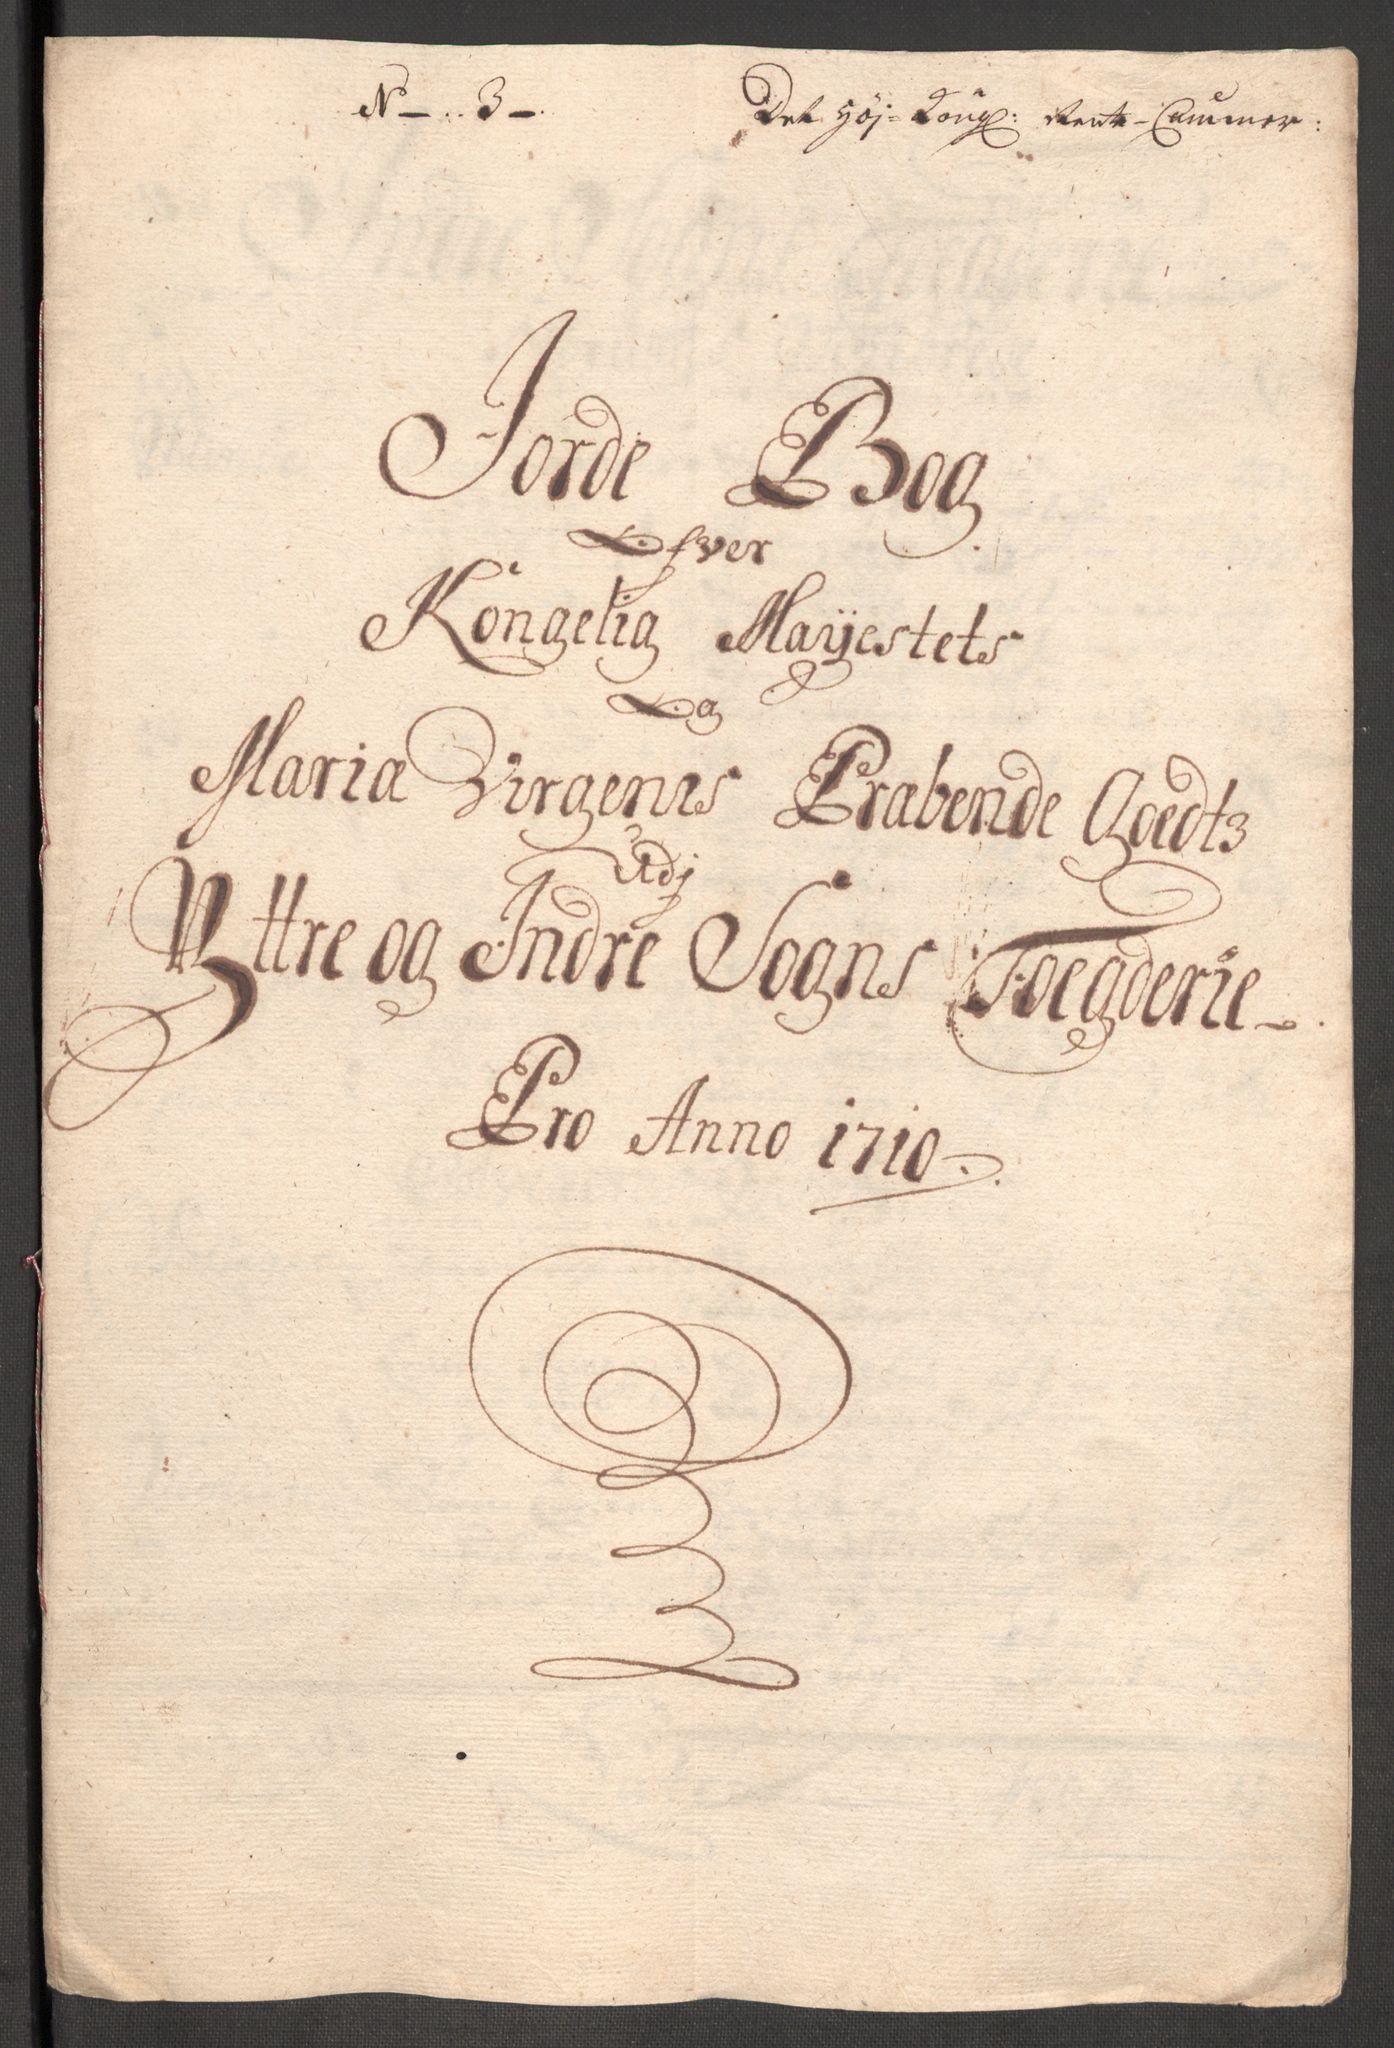 No. 3.
Det Höj- Kongl: Rente-Cammer:
Jorde Bog
Ofver
Kongelig Mayestets
Og
Maria Virgenis Præbende Goedts
Udj
Yttre og Indre Sogns Foegderie
Pro Anno 1710.